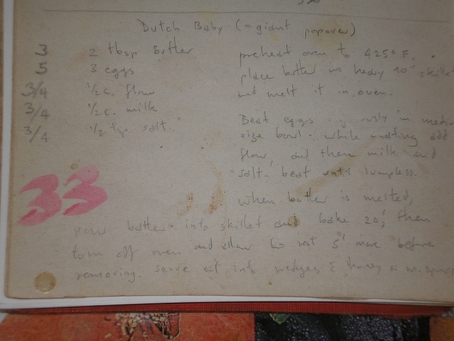 Dutch Baby (= giant popover)
3 2 tbsp butter preheat oven to 425° F.
5 3 eggs place butter in heavy 10" skillet
3/4 1/2 c. flour and melt it in oven.
3/4 1/2 c. milk
3/4 1/2 tsp. salt Beat eggs in
size bowl. while adding
flour, and then milk and
salt. beat until lumpless.
33
when butter is melted,
pour batter into skillet and bake 20'; then
turn off oven and allow to rest 5' more before
removing. serve cut into wedges